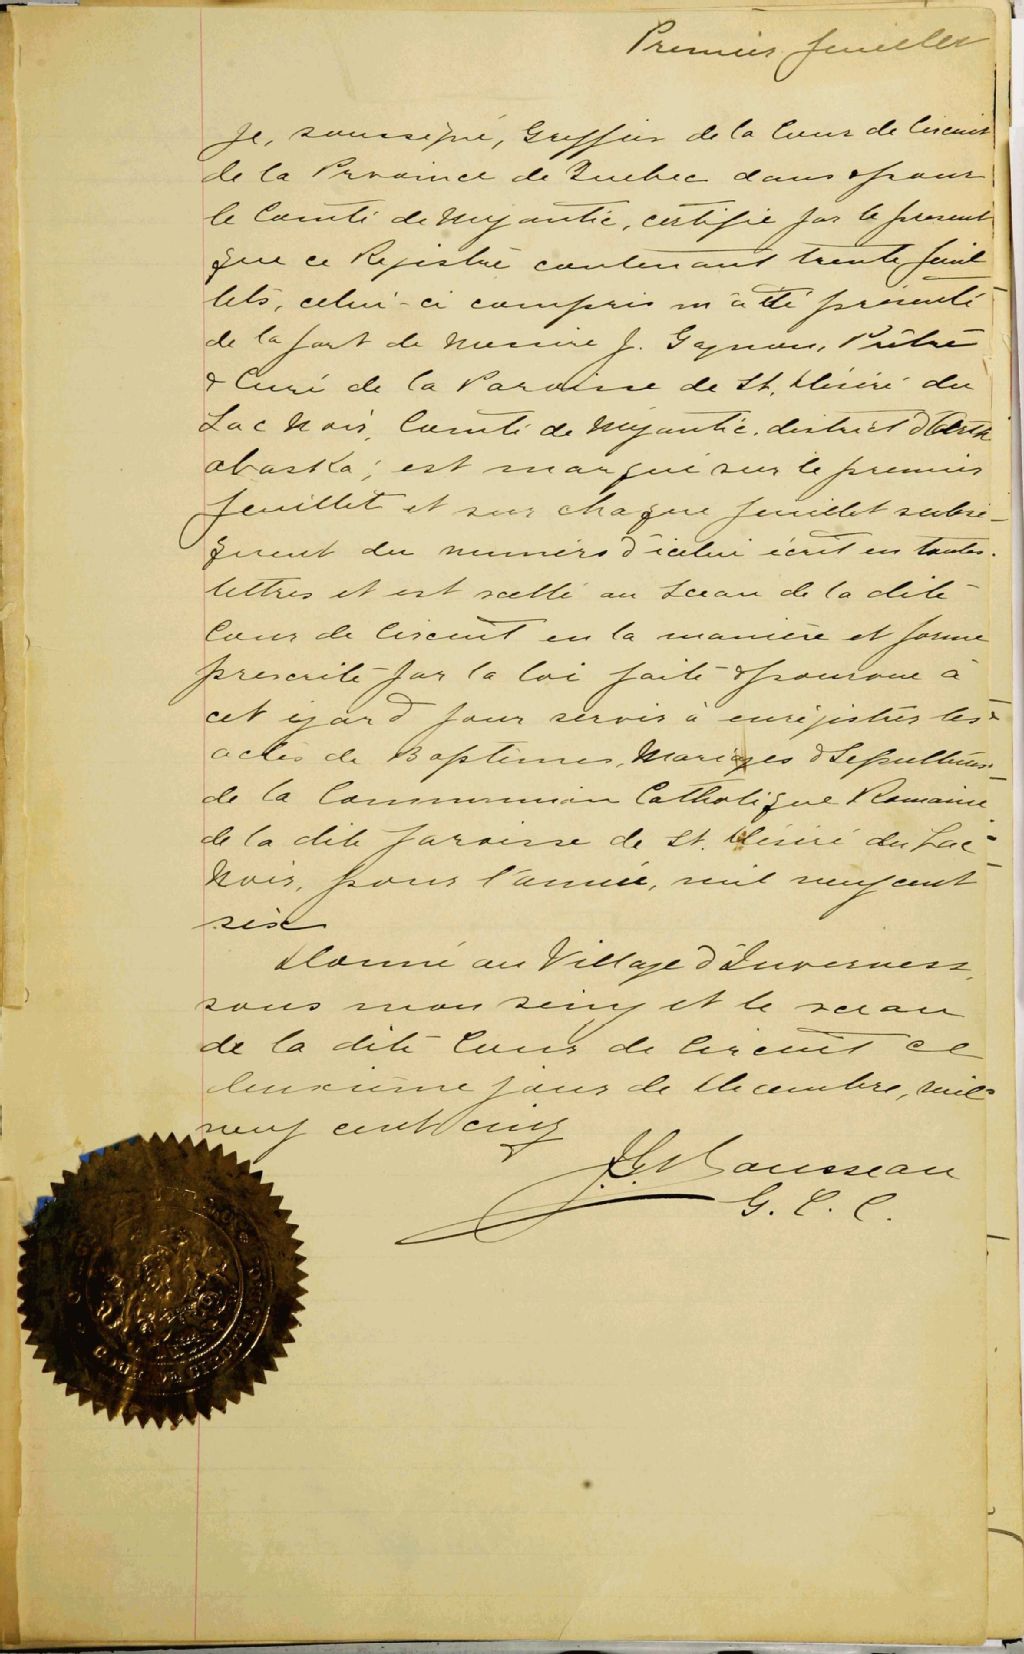 Premier feuillet
Je, soussigné, Greffier de la Cour de Circuit
de la Province de Quebec dans & pour
le Comté de Megantic, certifie par le present
que ce Registre contenant trente feuil
lets, celui-ci compris m'a été présenté
de la part de Messire J. Gagnon, Prêtre
& Curé de la Paroisse de St. Désiré du
Lac Noir, Comté de Megantic, district d'Arth
abaska; est marqué sur le premier
feuillet et sur chaque feuillet subsé-
quent du numéro d'icelui écrit en toutes
lettres et est scellé au Sceau de la dite
Cour de Circuit en la manière et forme
prescrite par la loi faite & pourvue à
cet égard pour servir à enrégistrer les
actes de Baptêmes, Mariages & Sepultures
de la Communion Catholique Romaine
de la dite paroisse de St. Désiré du Lac
Noir, pour l'année, mil neuf cent
six
Donné au Village d'Inverness,
sous mon seing et le sceau
de la dite Cour de Circuit ce
deuxième jour de Decembre, mil
neuf cent cinq
Rousseau
G. C. C.
COUR DE CIRCUIT